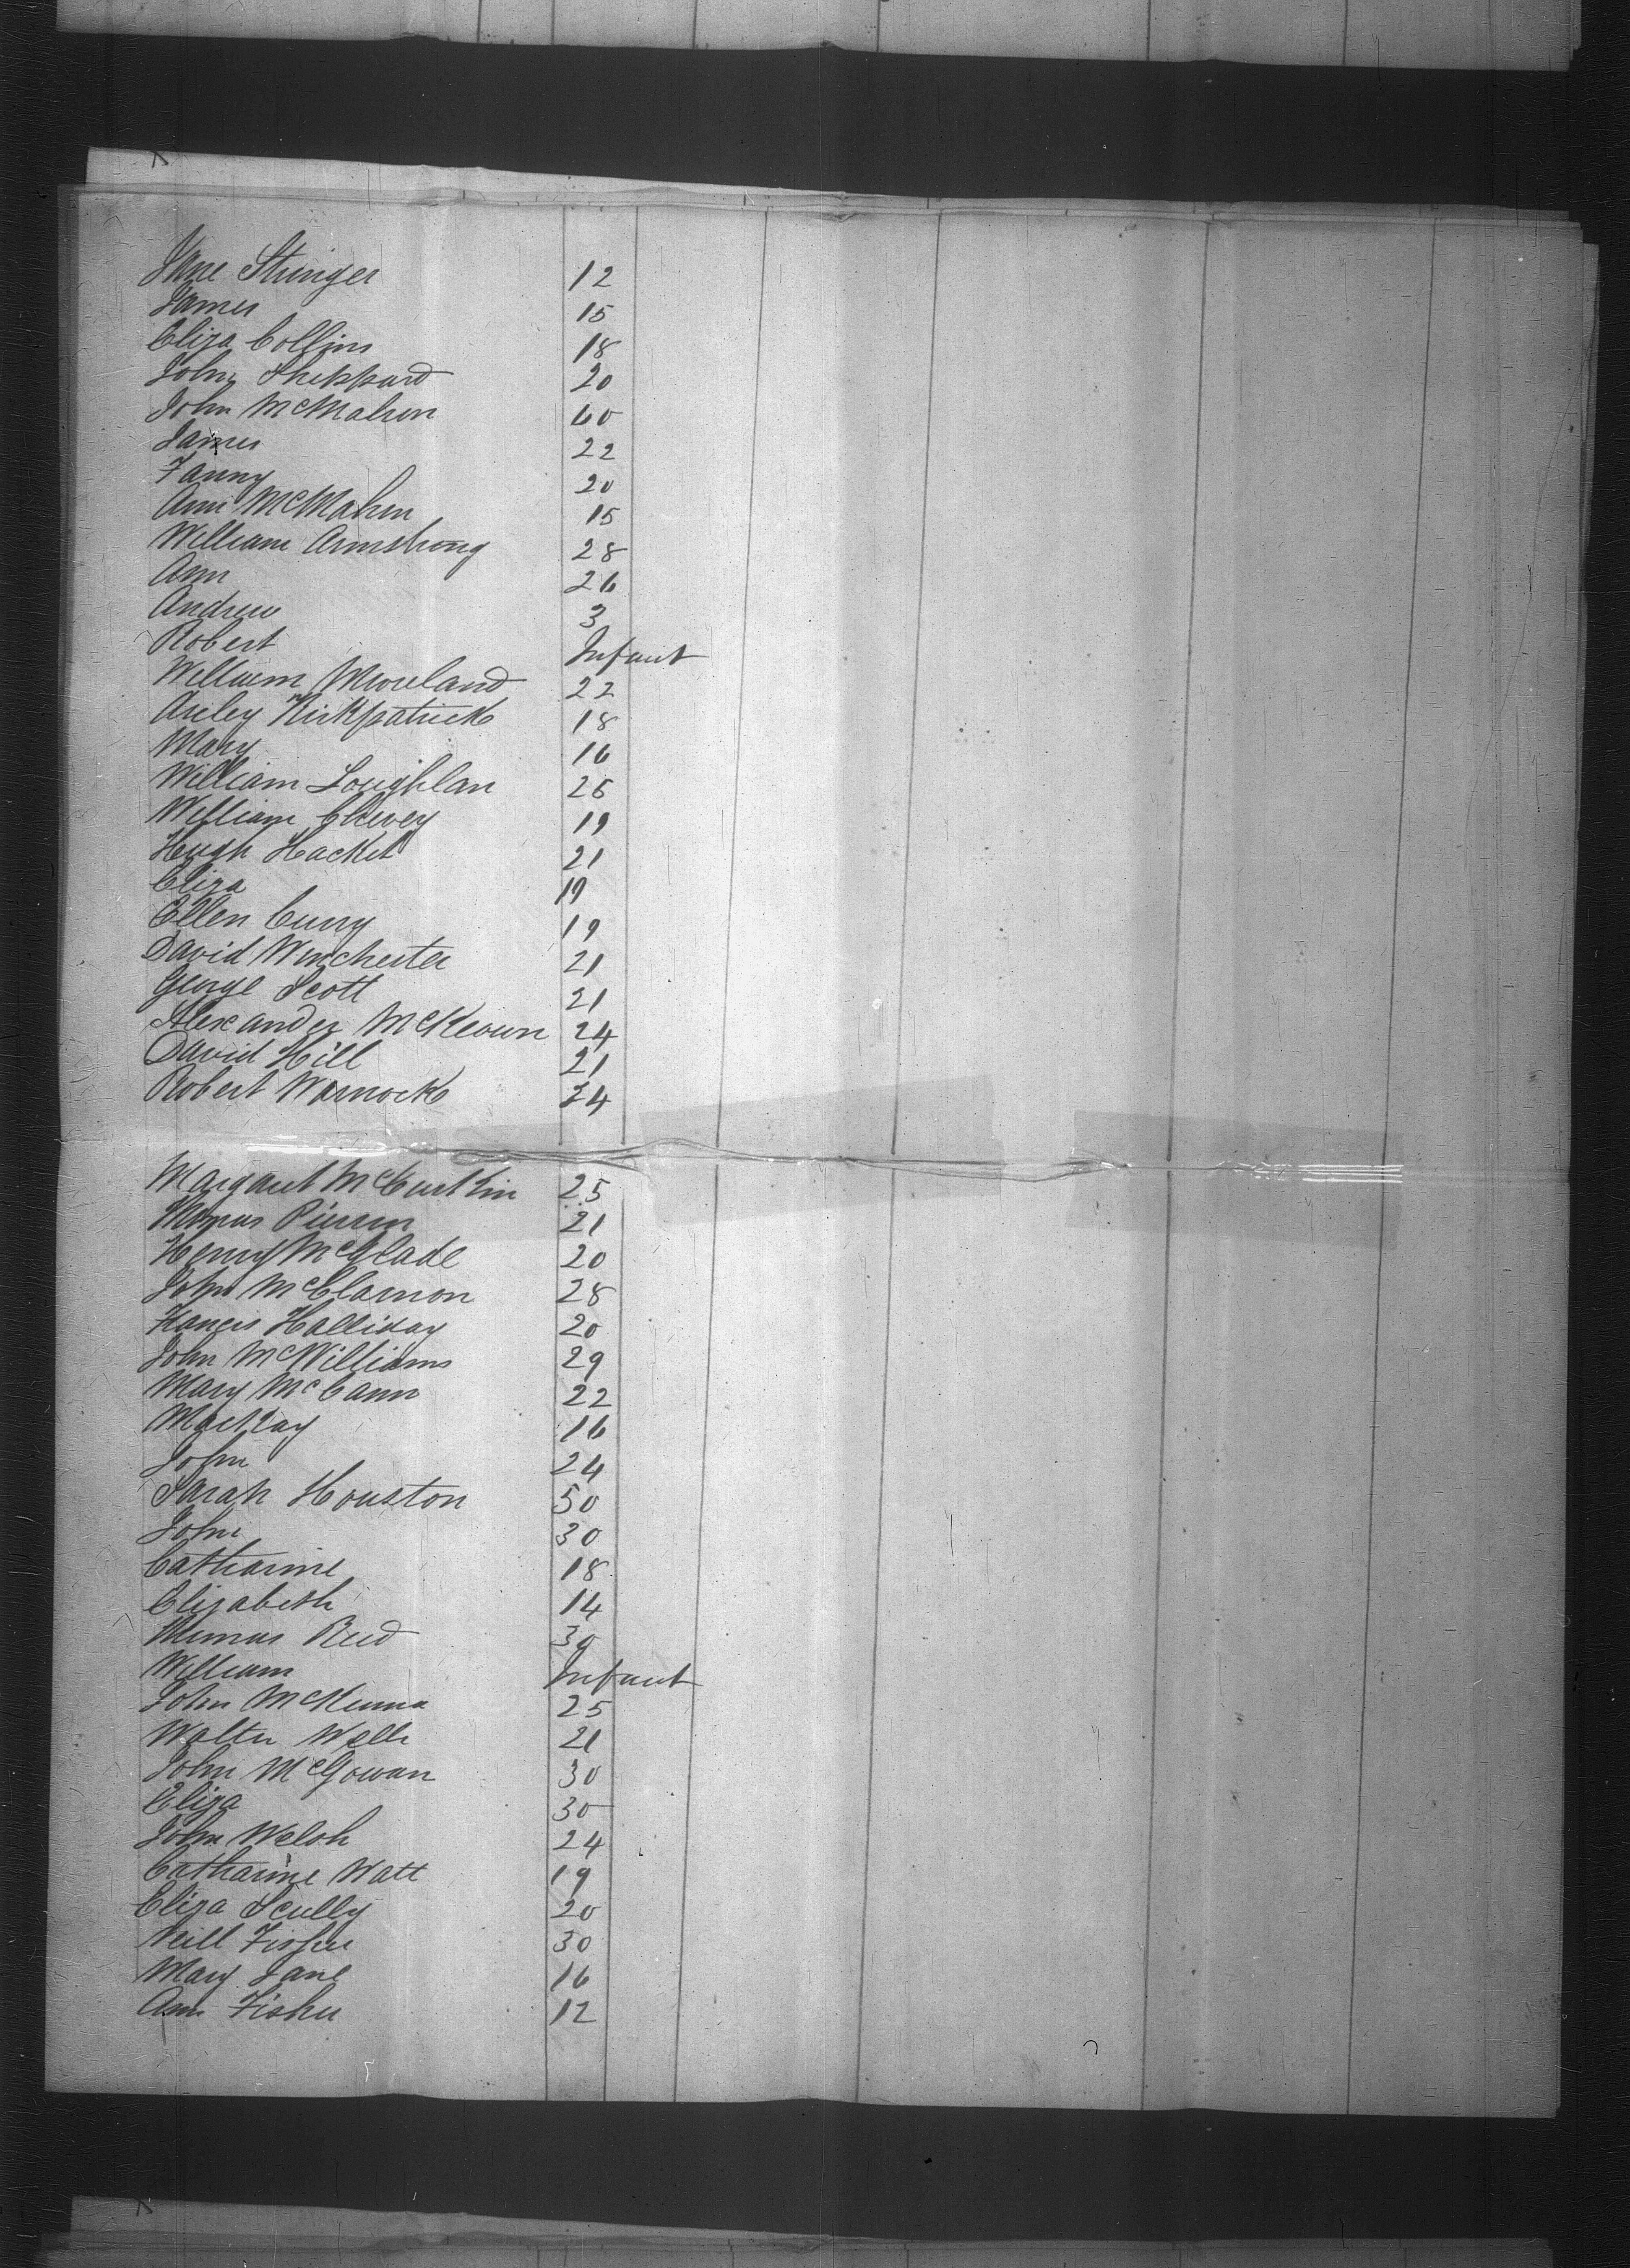 Jane Stringer 12
James 15
Eliza Collins 18
John Sheppard 20
John McMahon 60
James 22
Fanny 20
Ann McMahon 15
William Armstrong 28
Ann 26
Andrew 3
Robert Infant
William Moreland 22
Kirkpatrick 18
Mary 16
William Loughlan 26
William 19
Hugh Hacket 21
Eliza 19
Ellen Curry 19
David Winchester 21
George Scott 21
Alexander McKeown 24
David Hill 21
Robert Warnock 24
Margaret McCurkin 25
Thomas 21
Henry McGlade 20
John McClarnon 28
Francis Halliday 20
John McWilliams 29
Mary McCann 22
16
John 24
Sarah Houston 50
John 30
Catharine 18
Elizabeth 14
Thomas Reid 30
William Infant
John McKenna 25
Walter Wells 21
John McGowan 30
Eliza 30
John Welsh 24
Catharine Watt 19
Eliza Scully 20
Neill Fisher 30
Mary Jane 16
Ann Fisher 12